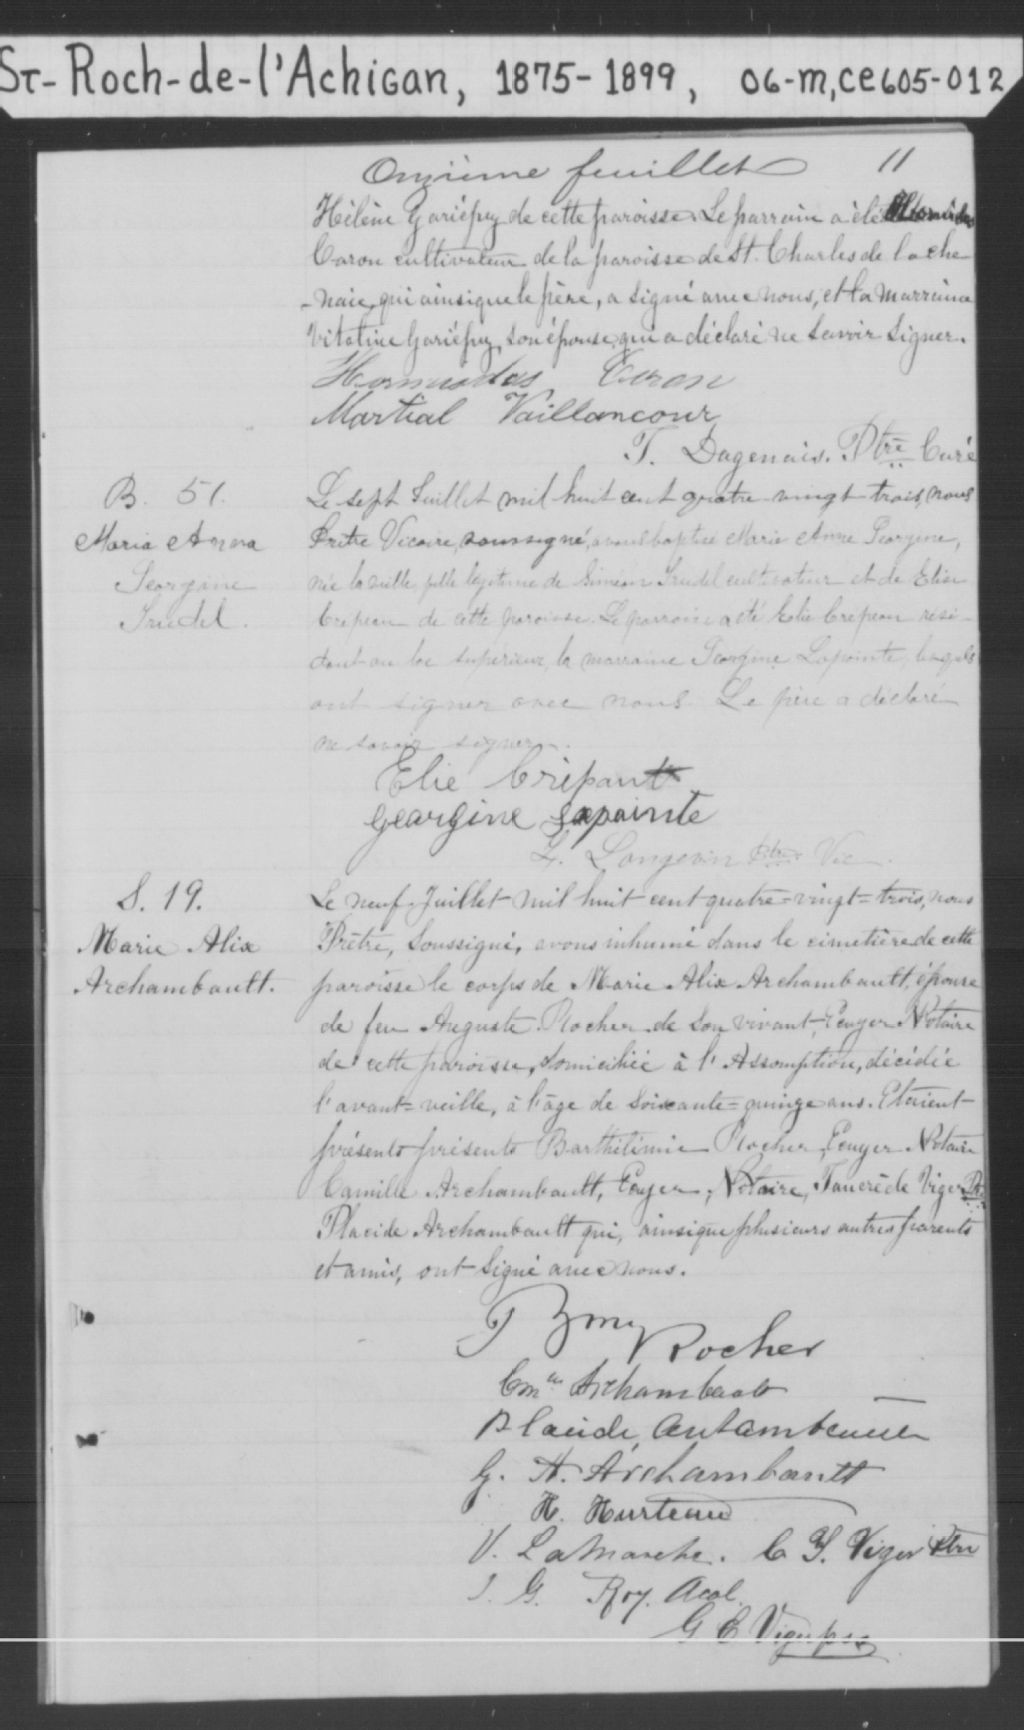 St-Roch-de-l'Achigan, 1875-1899, 06-M,CE605-012
Onzième feuillet 11
Hélène Gariépy de cette paroisse. Le parrain a été
Caron cultivateur de la paroisse de St. Charles de Lache
-naie, qui ainsi que le père, a signé avec nous, et la marraine
Vitaline Gariépy, son épouse, qui a déclaré ne savoir signer.
Hormisdas Caron
Martial Vaillancour
T. Dagenais. Ptre Curé
B. 51.
Maria Anna
Georgine
Trudel.
Le sept Juillet mil huit cent quatre-vingt trois, nous
Prêtre Vicaire, soussigné, avons baptisé Marie Anne Georgine,
née la veille, fille légitime de Siméon Trudel cultivateur et de Elise
Crepeau de cette paroisse. Le parrain a été Elie Crepeau rési-
dant au lac supérieur, la marraine Georgine Lapointe, lesquels
ont signer avec nous. Le père a déclaré
ne savoir signer.
Elie Crèpaut
Geargine Lapainte
Longevin Ptre Vic.
S. 19.
Marie Alix
Archambault.
Le neuf Juillet mil huit cent quatre=vingt=trois, nous
Prêtre, Soussigné, avons inhumé dans le cimetière de cette
paroisse le corps de Marie Alix Archambault, épouse
de feu Auguste Rocher de son vivant, Ecuyer Notaire
de cette paroisse, domiciliée à l'Assomption, décédée
l'avant=veille, à l'âge de soixante=quinze ans. Etaient
présents présents Barthélémie Rocher, Ecuyer Notaire
Camille Archambault, Ecuyer, Notaire, Tancrède Viger Ptre
Placide Archambault qui, ainsique plusieurs autres parents
et amis, ont signé avec nous.
Rocher
Cmlle Archambault
Placide Archambault
G. A. Archambault
H. Hurteau
V. LaMarche. C. T. Viger Ptre
J. G. Roy. Acol.